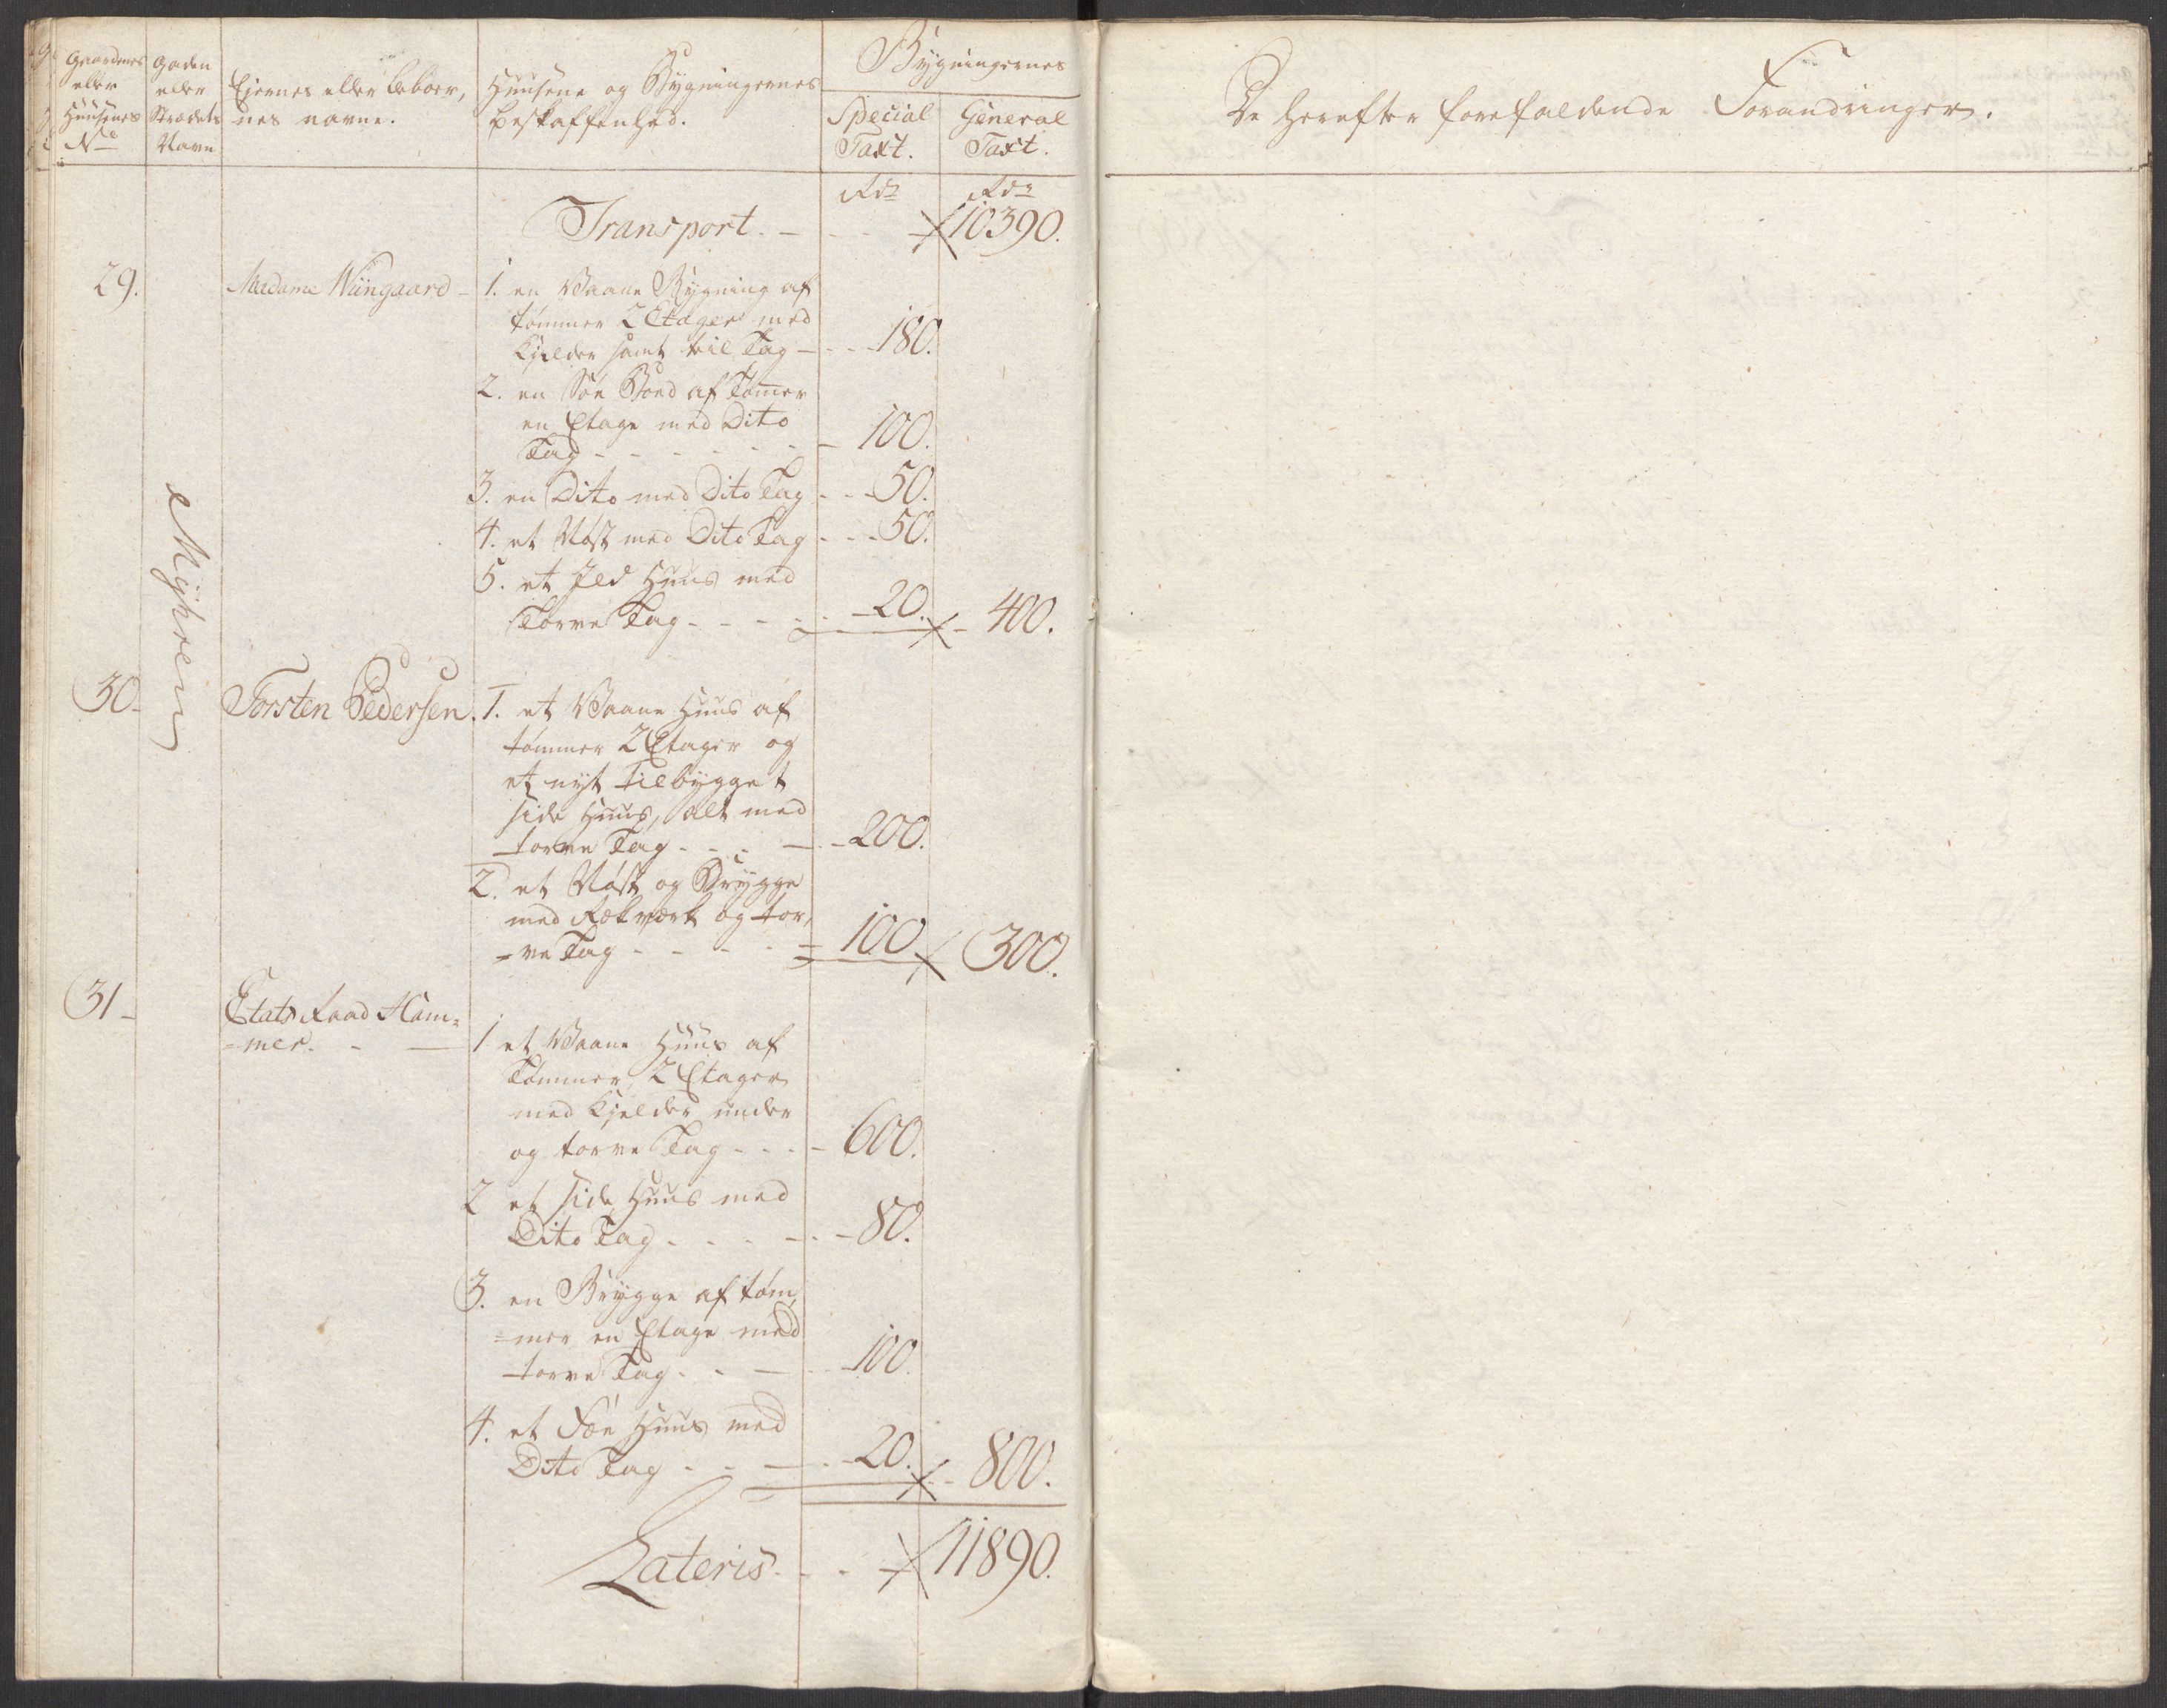 Gaardenes eller Huusenes No
Gaden eller Strædets Navn
Ejernes eller beboer,
nes navne.
Huusene og Bygningernes
beskaffenhed.
Bygningernes
Special Taxt.
General Taxt.
De herefter forefaldende Forandringer.
Rdr Rdr
Transport. 10390.
Myhren
29. Madame Wiingaard 1. en Vaane Bygning af
tømmer 2 Etager med
Kjelder samt teil Tag 180.
2. en Søe Boed af Tømmer
en Etage med Dito
Tag 100.
3. en Dito med Dito Tag 50.
4. et Nøst med Dito Tag 50.
5. et Ild Huus med
Torve Tag 20. 400.
30 Torsten Pedersen. 1. et Vaane Huus af
tømmer 2 Etager og
et nyt Tilbygget
side Huus, alt med
torve Tag 200.
2. et Nøst og Brygge
med Rækværk og tor,
=ve Tag 100 300.
31 Etats Raad Ham=
=mer. 1 et Vaane Huus af
Tømmer 2 Etager
med Kjelder under
og torve Tag 600.
2 et side Huus med
Dito Tag 80.
3. en Brygge af tøm,
=mer en Etage med
torve Tag 100.
4. et Fæe Huus med
Dito Tag 20. 800.
Lateris 11890.